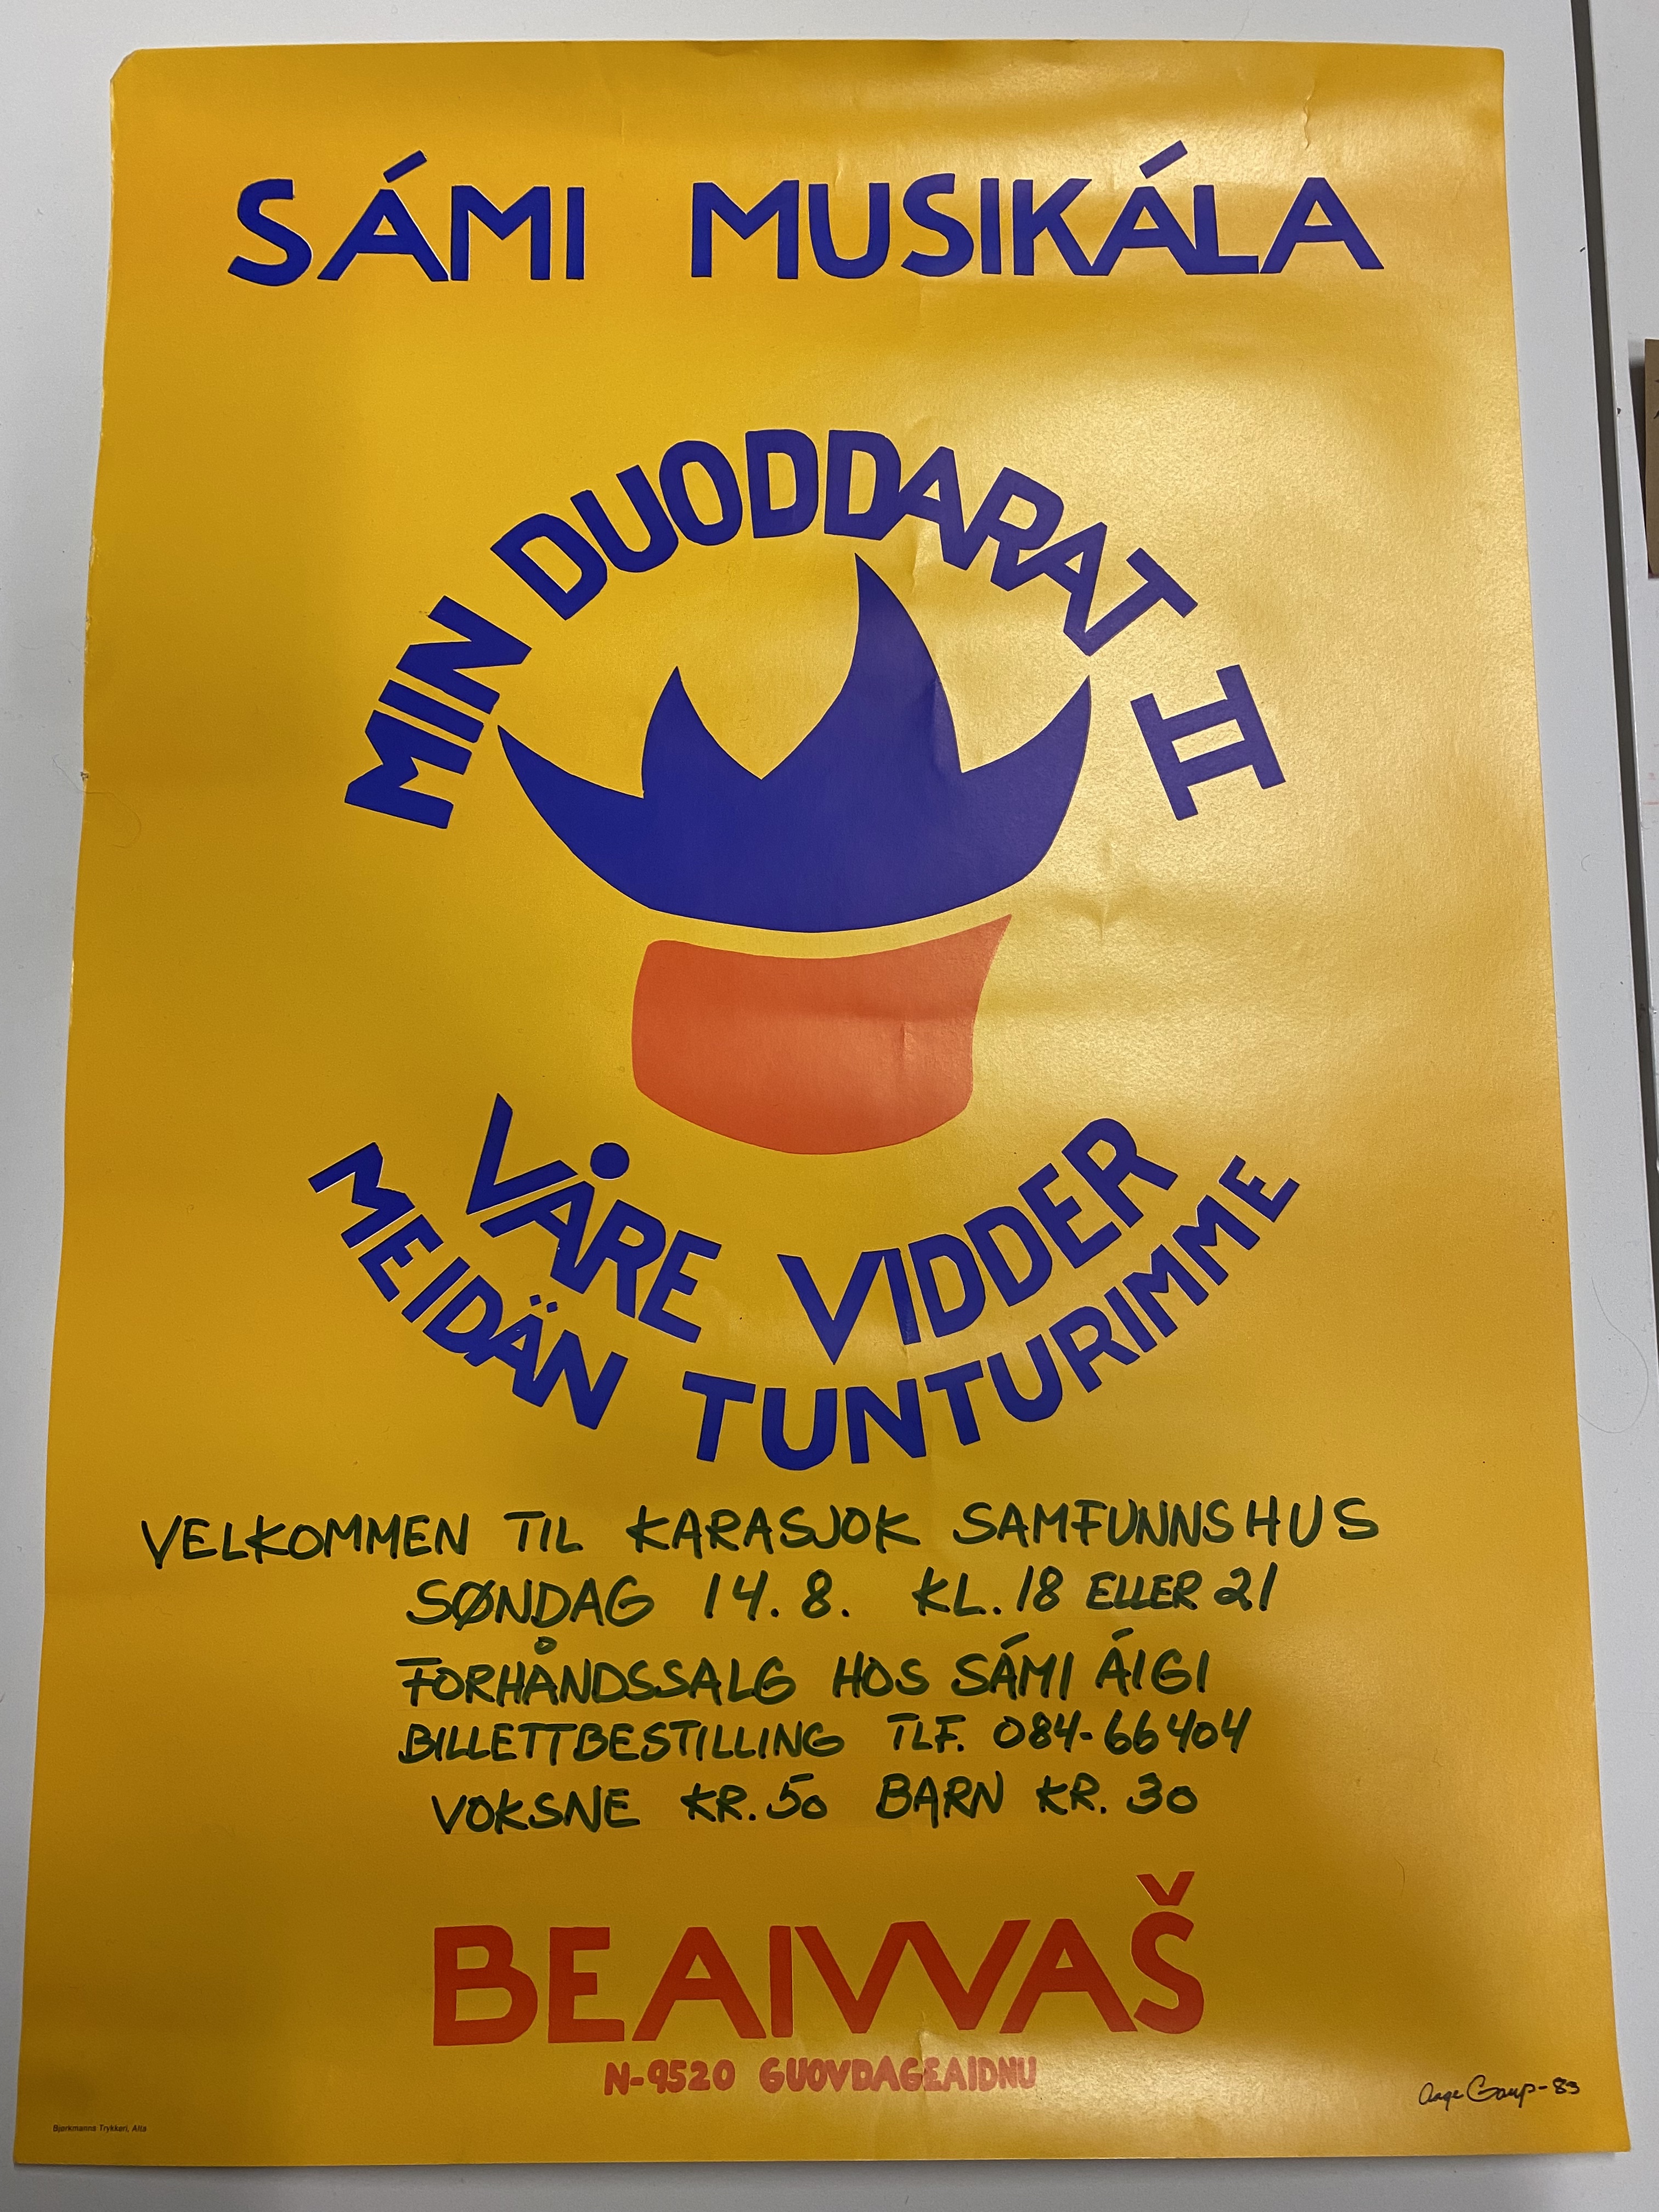 SÁMI MUSIKÁLA
MIN DUODDARAT II
VÅRE VIDDER
MEIDÄN TUNTURIMME
VELKOMMEN TIL KARASJOK SAMFUNNSHUS
SØNDAG 14.8. KL. 18 ELLER 21
FORHÅNDSSALG HOS SÁMI ÁIGI
BILLETTBESTILLING TLF. 084-66404
VOKSNE KR. 50 BARN KR. 30
BEAIVVAŠ
N-9520 GUOVDAGEAIDNU
Aage Gaup-83
Bjørkmanns Trykkeri, Alta